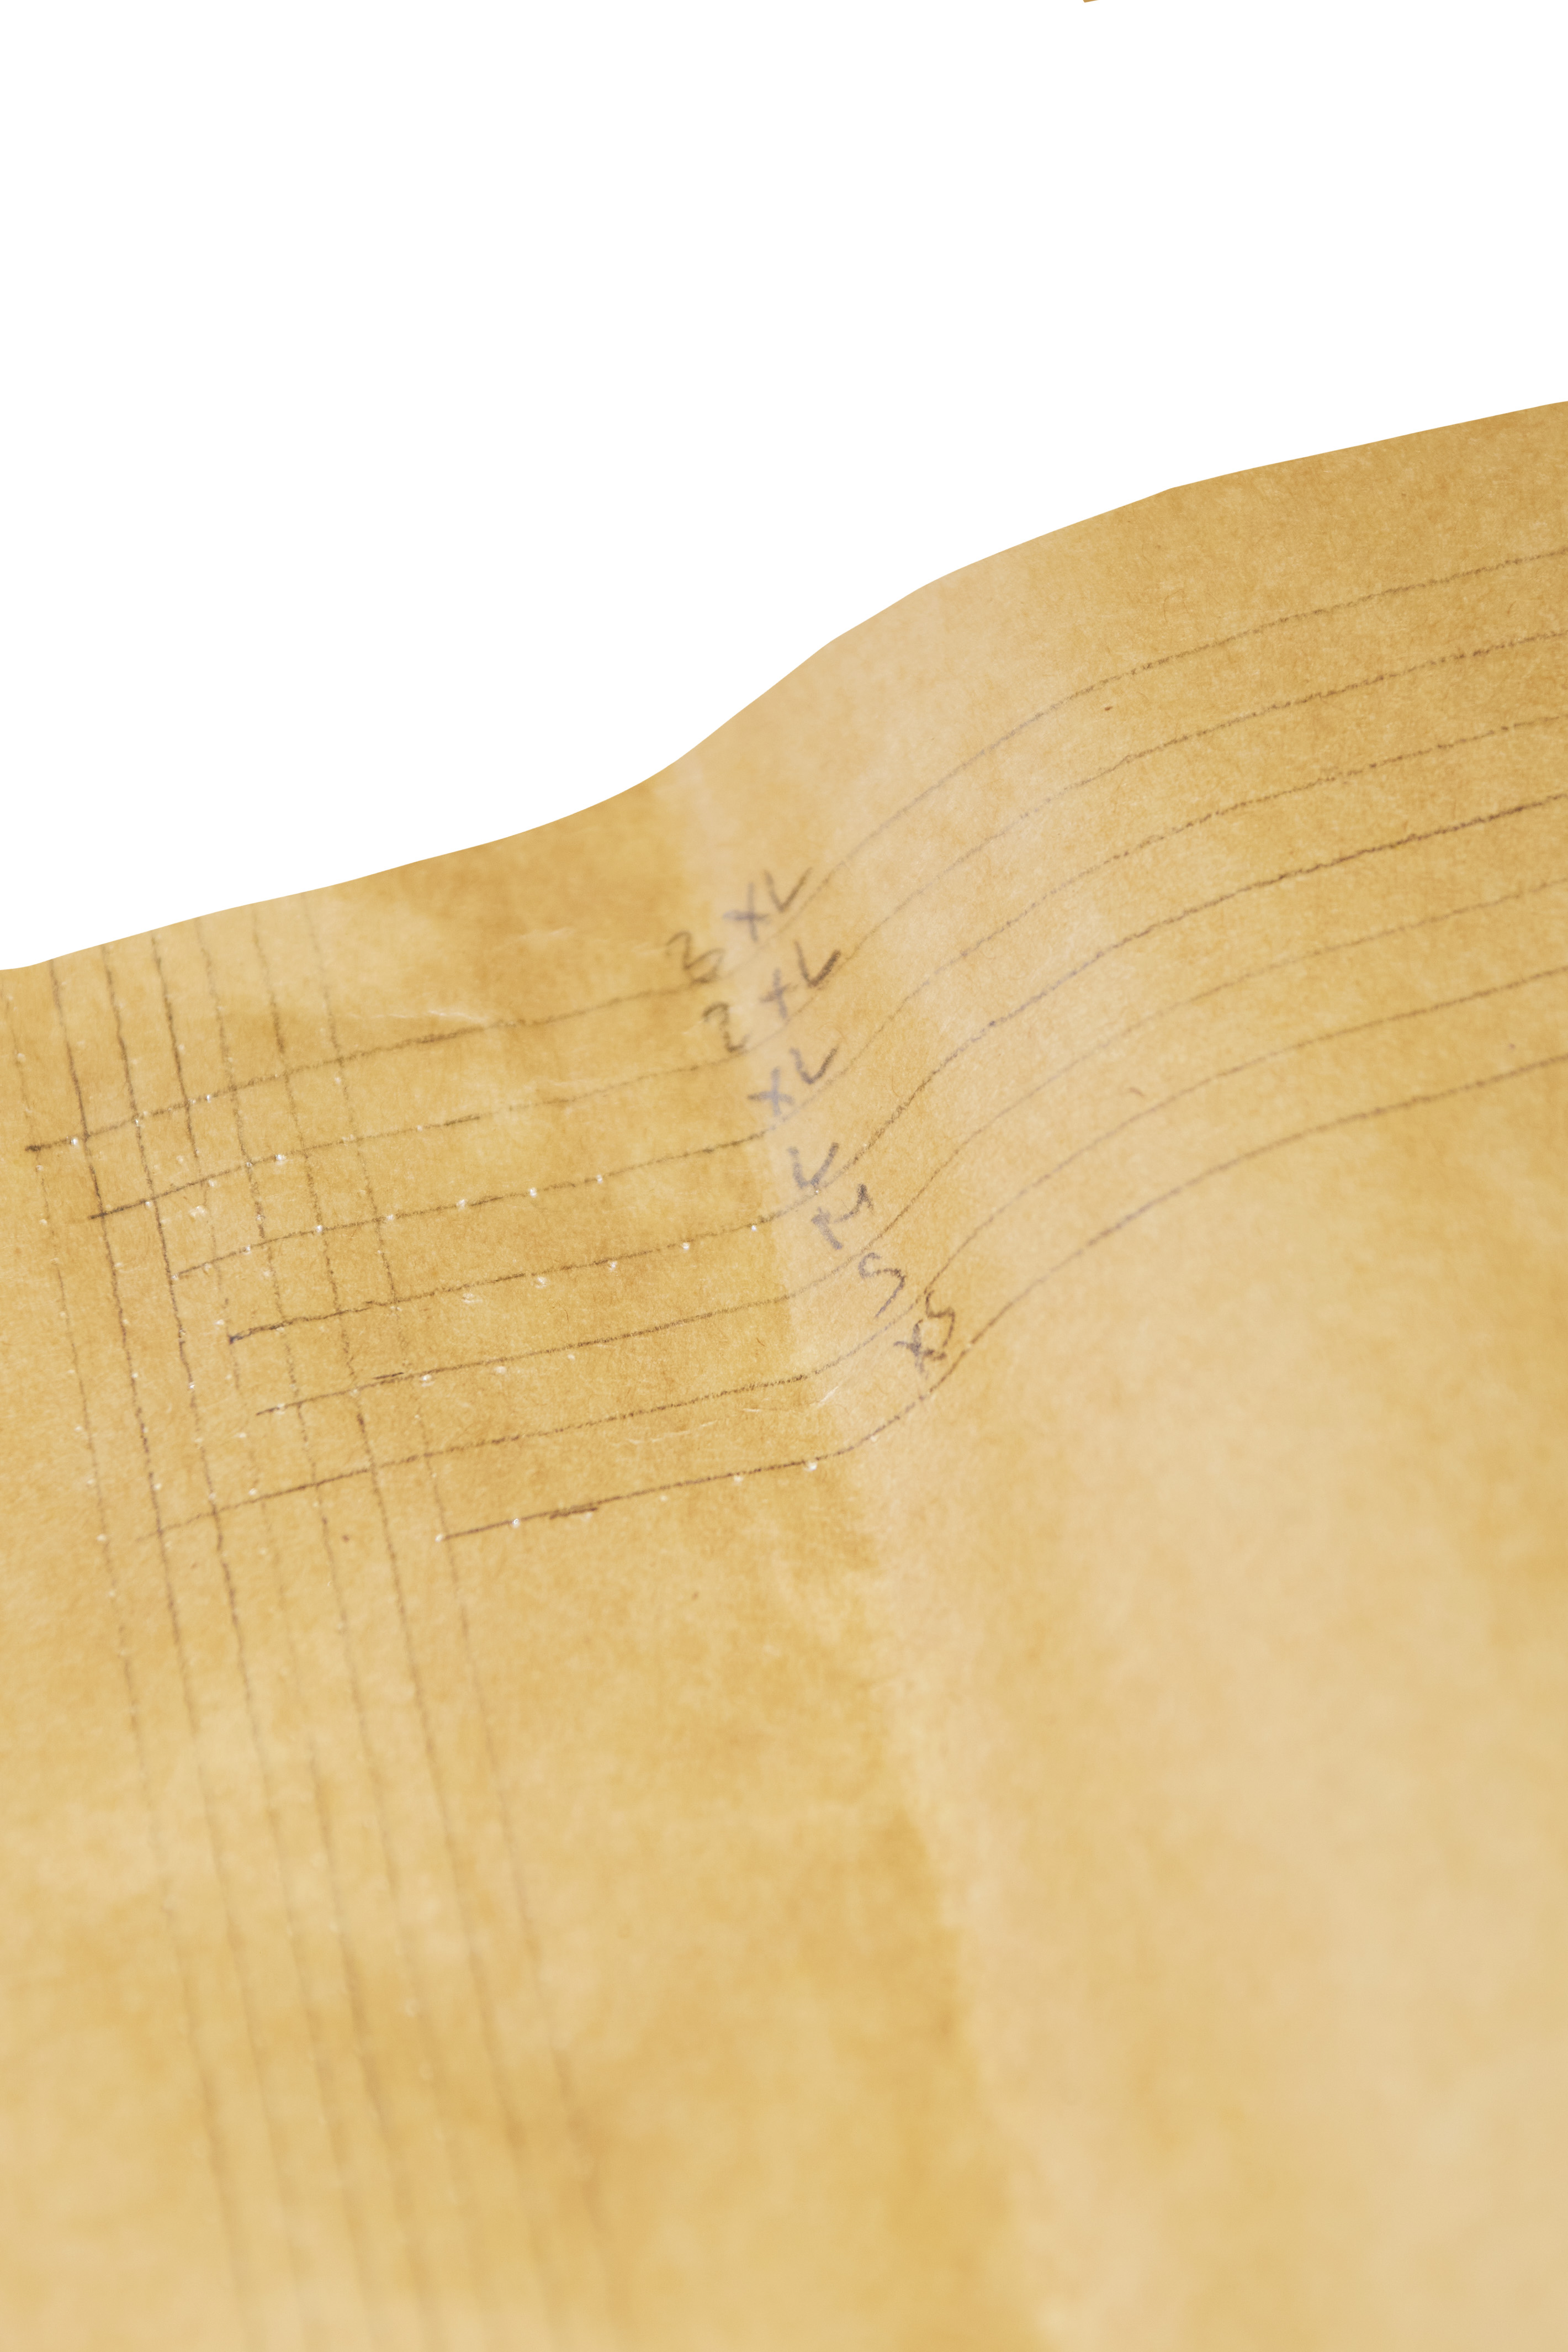 3XL
2XL
XL
L
M
S
XS